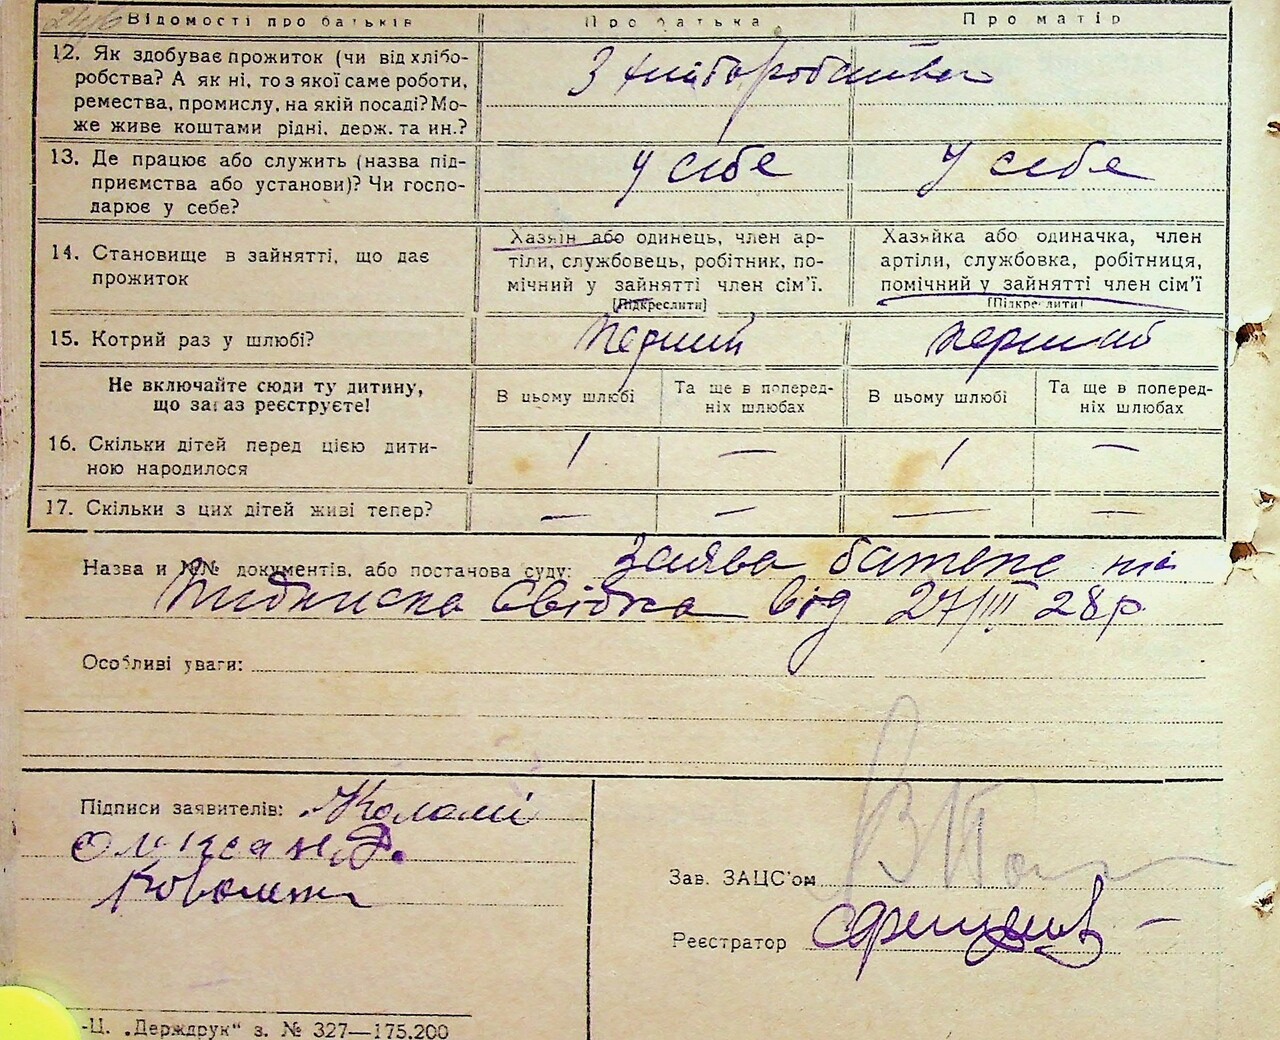 Відомості про батьків Про батька Про матір
12. Як здобуває прожиток (чи від хлібо-
робства? А як ні, то з якої саме роботи,
ремества, промислу, на якій посаді? Мо-
же живе коштами рідні, держ. та ин.?
З хліборобства
13. Де працює або служить (назва під-
приємства або установи)? Чи госпо-
дарює у себе?
у себе у себе
14. Становище в зайнятті, що дає
прожиток
Хазяїн або одинець, член ар-
тіли, службовець, робітник, по-
мічний у зайнятті член сім'ї.
[Підкреслити]
Хазяйка або одиначка, член
артіли, службовка, робітниця,
помічний у зайнятті член сім'ї
[Підкреслити]
15. Котрий раз у шлюбі? перший перший
Не включайте сюди ту дитину,
що зараз реєструєте!
В цьому шлюбі Та ще в поперед-
ніх шлюбах В цьому шлюбі Та ще в поперед-
ніх шлюбах
16. Скільки дітей перед цією дити-
ною народилося
1 — 1 —
17. Скільки з цих дітей живі тепер? — — — —
Назва и №№ документів, або постанова суду: Заява батька та
підписка свідка від 27/III 28р.
Особливі уваги:
Підписи заявителів:
Зав. ЗАЦС'ом
Реєстратор
-Ц. „Держдрук" з. № 327—175.200